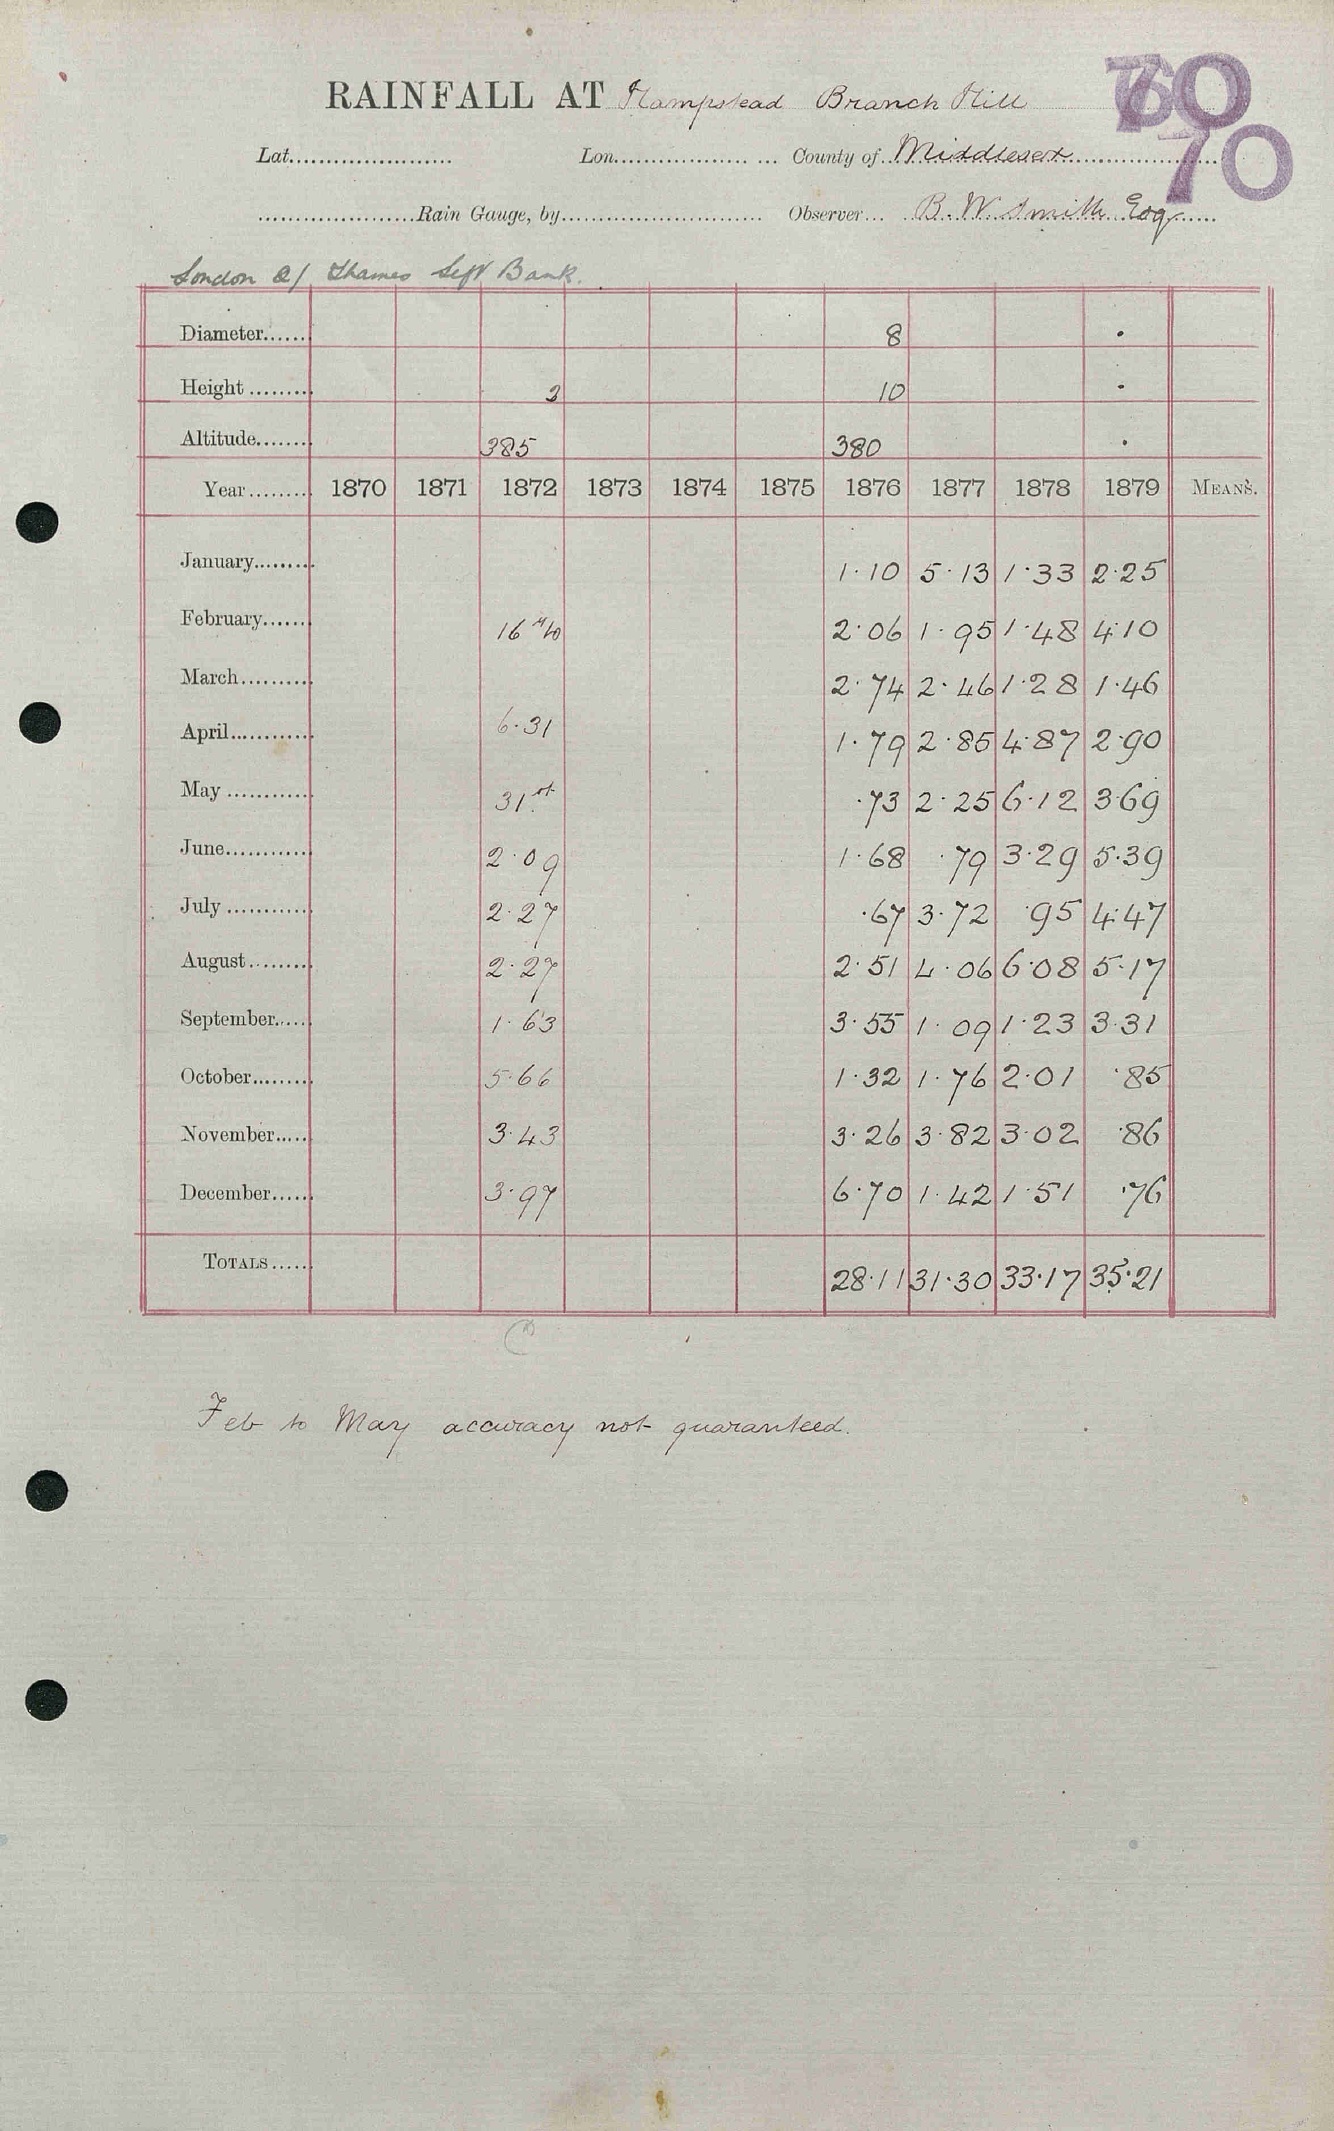 RAINFALL AT Hampstead Branch Hill
60
70
Lat. Lon. County of Middlesex
Rain Gauge, by Observer B. W. Smith Esq
London Thames Left Bank.
Diameter 8 ·
Height 3 10 ·
Altitude 385 380 ·
Year 1870 1871 1872 1873 1874 1875 1876 1877 1878 1879 MEANS.
January 1·10 5·13 1·33 2·25
February 16th to 2·06 1·95 1·48 4·10
March 2·74 2·46 1·28 1·46
April 6·31 1·79 2·85 4·87 2·90
May 31st ·73 2·25 6·12 3·69
June 2·09 1·68 ·79 3·29 5·39
July 2·27 ·67 3·72 ·95 4·47
August 2·27 2·51 4·06 6·08 5·17
September 1·63 3·55 1·09 1·23 3·31
October 5·66 1·32 1·76 2·01 ·85
November 3·43 3·26 3·82 3·02 ·86
December 3·97 6·70 1·42 1·51 ·76
TOTALS 28·11 31·30 33·17 35·21
Feb to May accuracy not guaranteed.